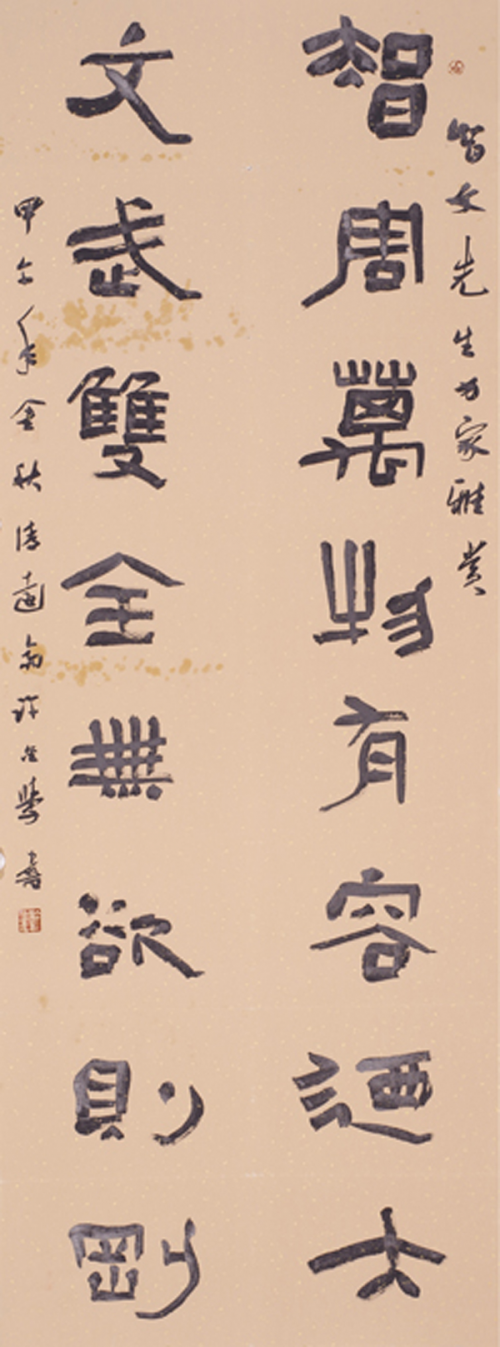 智文先生方家雅賞
智周萬物有容迺大
文武雙全無欲則剛
甲午年金秋 書